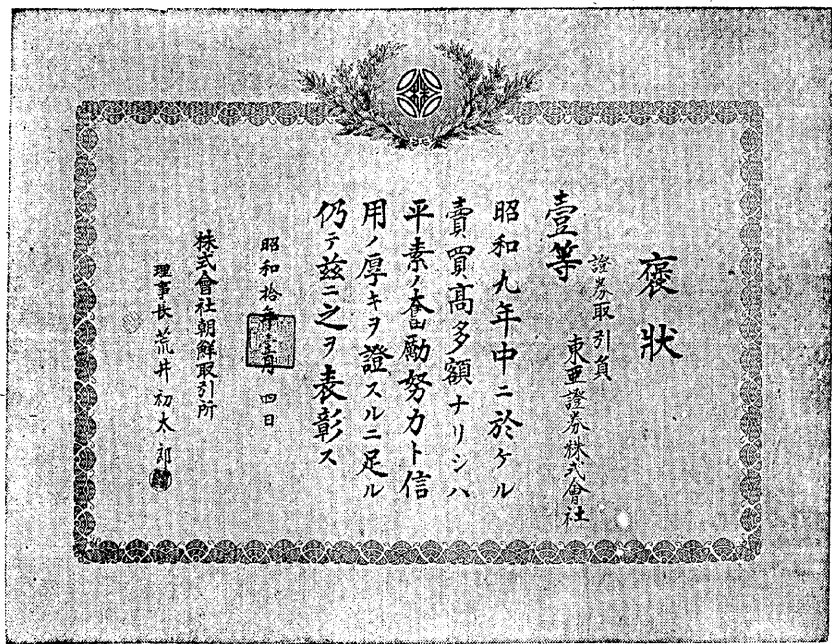 褒狀
證券取引員
東亜證券株式會社
壹等
昭和九年中ニ於ケル
賣買高多額ナリシハ
平素ノ奮勵努力ト信
用ノ厚キヲ證スルニ足ル
仍テ玆ニ之ヲ表彰ス
昭和拾年壹月四日
株式會社朝鮮取引所
理事長荒井初太郎